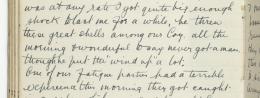 was at any rate I got quite big enough
shock blast me for a while, he threw
these great shells among our Coy. all the
morning & wonderful to say never got a man,
though he put the wind up a lot.
One of our fatigue parties had a terrible
experience this morning they got caught